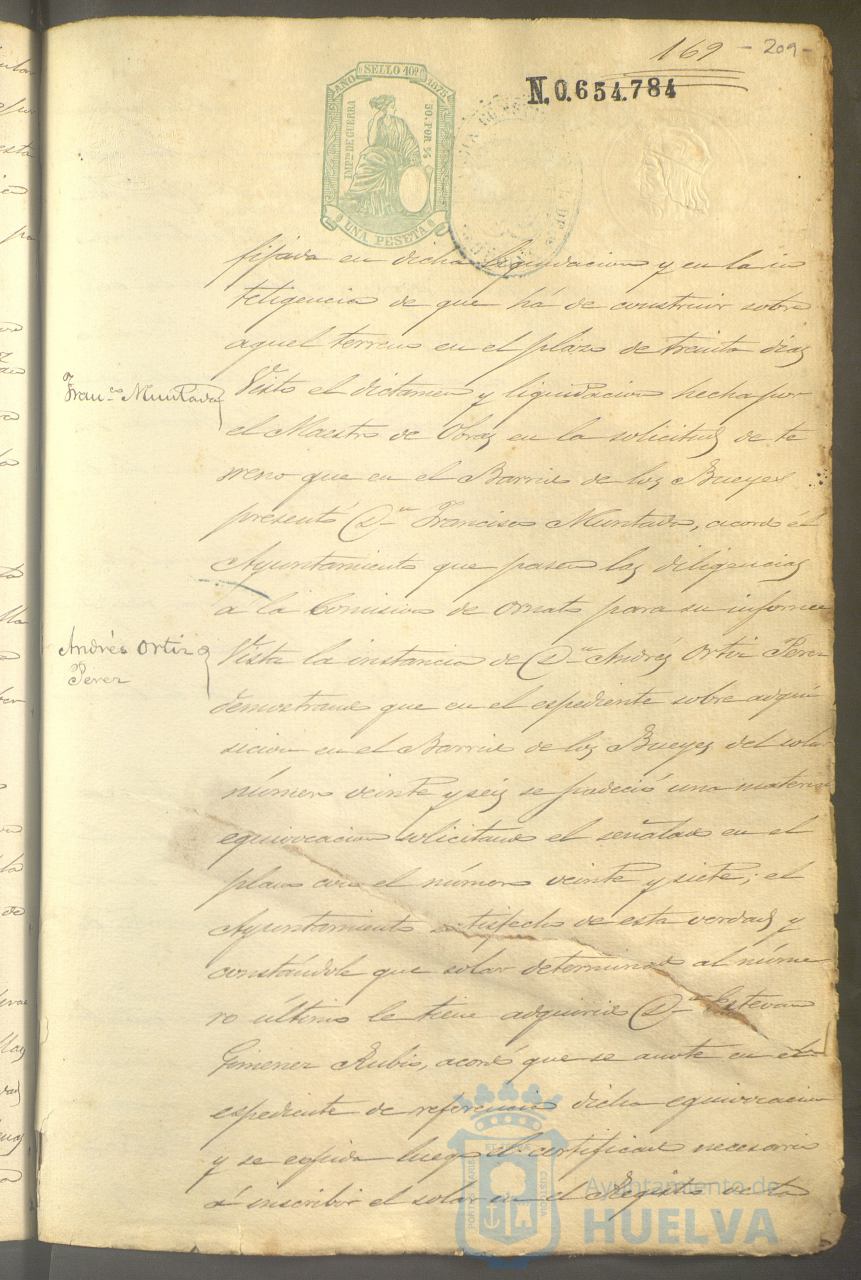 169 - 209 -
N. 0.654.784
AÑO SELLO 10º 1875
IMPTO DE GUERRA
50. POR %
UNA PESETA
fijada en dicha liquidacion y en la in
teligencia de que há de construir sobre
aquel terreno en el plazo de treinta dias
Franco Muntada
Visto el dictamen y liquidacion hecha por
el Maestro de Obras en la solicitud de te
rreno que en el Barrio de los Bueyes
presentó Dn Francisco Muntada, acordó el
Ayuntamiento que pasen las diligencias
a la Comision de ornato para su informe
Andrés Ortiz
Perez
Vista la instancia de Dn Andrés Ortiz Perez
demostrando que en el espediente sobre adqui
sicion en el Barrio de los Bueyes del solar
número veinte y seis se padeció una material
equivocacion solicitando el señalado en el
plano con el número veinte y siete; el
Ayuntamiento satisfecho de esta verdad y
constándole que solar determinado al núme
ro último le tiene adquirido Dn Estevan
Gimenez Rubio, acordó que se anote en el
espediente de referencia dicha equivocacion
y se espida luego el certificado necesario
á inscribir el solar en el Registro de la
Ayuntamiento de
HUELVA